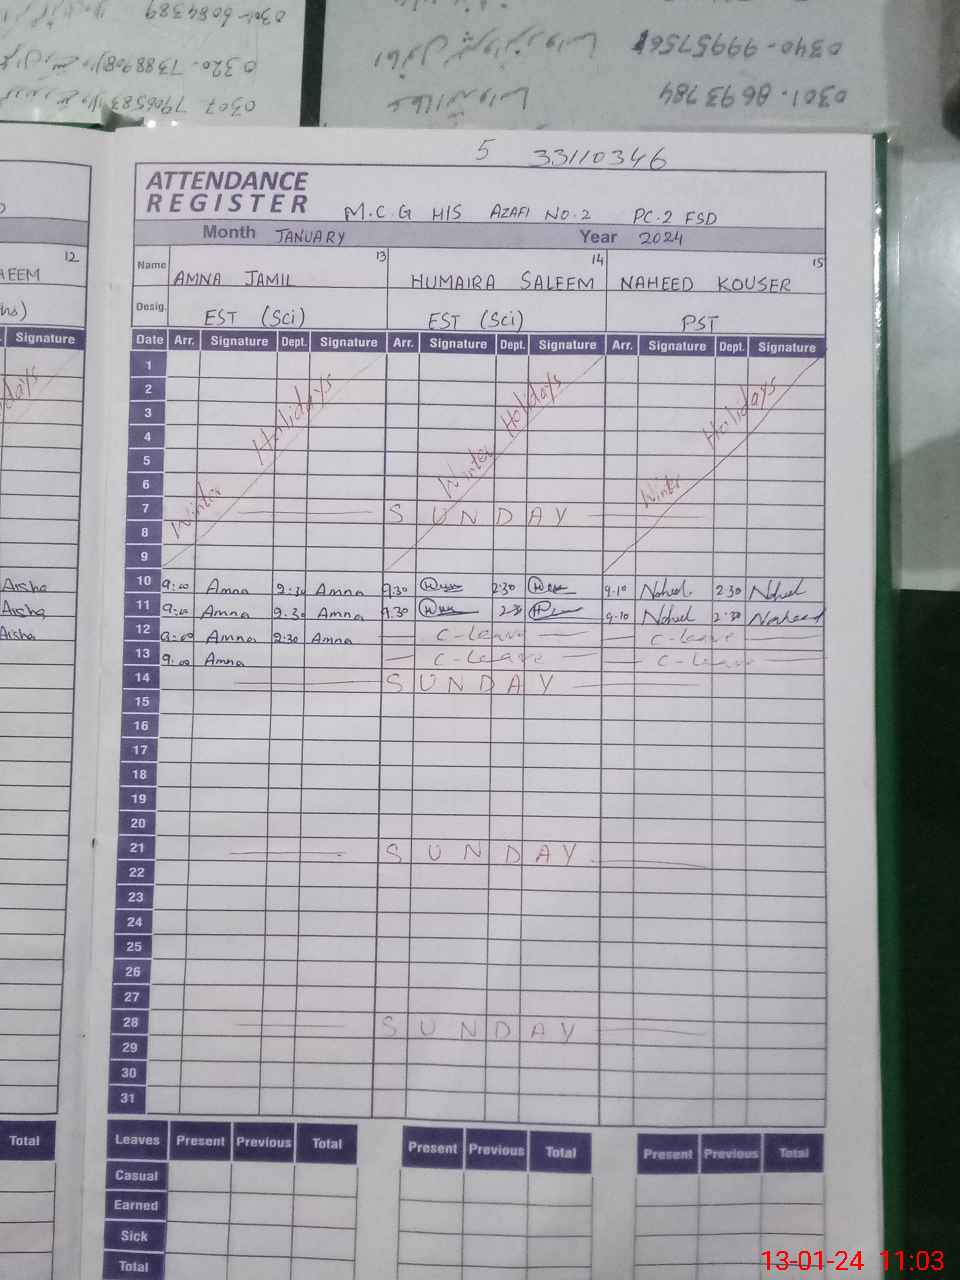 0301-6084389
0320-7388908
0307 7906583
0340-9995756
0301-8693784
5 33110346
ATTENDANCE
REGISTER M.C.G H/S AZAFI NO.2 PC-2 FSD
Month JANUARY Year 2024
12
AEEM
Signature
Aisha
Aisha
Aisha
Total
Name AMNA JAMIL 13 HUMAIRA SALEEM 14 NAHEED KOUSER 15
Desig. EST (Sci) EST (Sci) PST
Date Arr. Signature Dept. Signature Arr. Signature Dept. Signature Arr. Signature Dept. Signature
Winter Holidays Winter Holidays Winter Holidays
1
2
3
4
5
6
7 SUNDAY
8
9
10 9:00 Amna 2:30 Amna 9:30 2:30 9.10 Nahed 2:30 Nahed
11 9:00 Amna 2:30 Amna 9:30 2:30 9.10 Nahed 2:30 Naheed
12 9:00 Amna 2:30 Amna C-leave C-leave
13 9:00 Amna C-leave C-leave
14 SUNDAY
15
16
17
18
19
20
21 SUNDAY
22
23
24
25
26
27
28 SUNDAY
29
30
31
Leaves Present Previous Total Present Previous Total Present Previous Total
Casual
Earned
Sick
Total
13-01-24 11:03